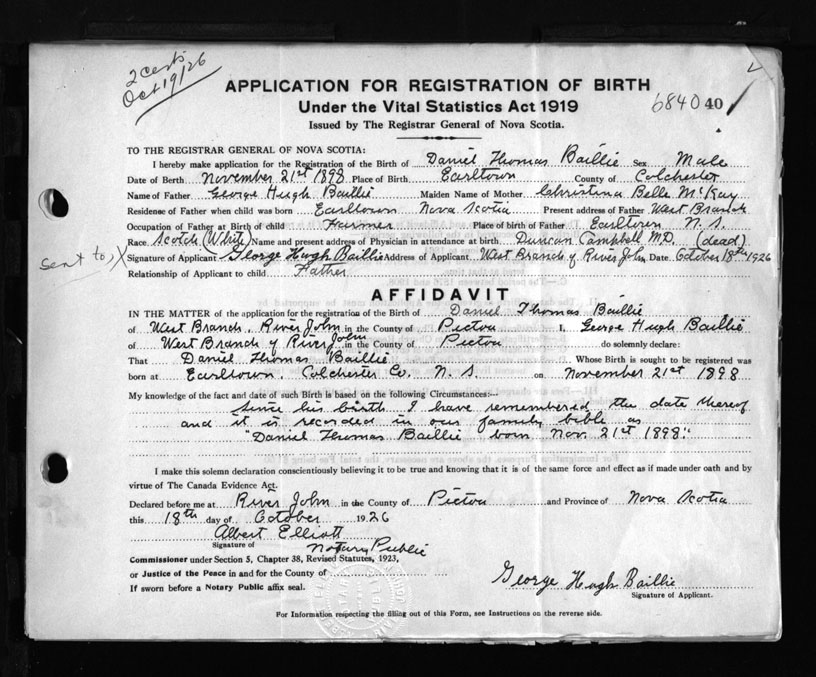 2 certs
Oct 19/26
APPLICATION FOR REGISTRATION OF BIRTH
Under the Vital Statistics Act 1919
6840 40
Issued by The Registrar General of Nova Scotia.
TO THE REGISTRAR GENERAL OF NOVA SCOTIA:
I hereby make application for the Registration of the Birth of Daniel Thomas Baillie Sex Male
Date of Birth November 21st 1898 Place of Birth Earltown County of Colchester
Name of Father George Hugh Baillie Maiden Name of Mother Christina Belle McKay
Residense of Father when child was born Earltown Nova Scotia Present address of Father West Branch
Occupation of Father at Birth of child Farmer Place of birth of Father Earltown N. S.
Race Scotch (White) Name and present address of Physician in attendance at birth Duncan Campbell M.D. (dead)
sent to X Signature of Applicant George Hugh Baillie Address of Applicant West Branch of River John Date October 18th 1926
Relationship of Applicant to child Father
AFFIDAVIT
IN THE MATTER of the application for the registration of the Birth of Daniel Thomas Baillie
of West Branch, River John in the County of Pictou I, George Hugh Baillie
of West Branch of River John in the County of Pictou do solemnly declare:
That Daniel Thomas Baillie Whose Birth is sought to be registered was
born at Earltown, Colchester Co. N. S. on November 21st 1898
My knowledge of the fact and date of such Birth is based on the following Circumstances:--
Since his birth I have remembered the date thereof
and it is recorded in our family bible as
"Daniel Thomas Baillie born Nov. 21st 1898."
I make this solemn declaration conscientiously believing it to be true and knowing that it is of the same force and effect as if made under oath and by
virtue of The Canada Evidence Act.
Declared before me at River John in the County of Pictou and Province of Nova Scotia
this 18th day of October 1926
Albert Elliott
Signature of Notary Public
Commissioner under Section 5, Chapter 38, Revised Statutes, 1923,
or Justice of the Peace in and for the County of
If sworn before a Notary Public affix seal.
George Hugh Baillie
Signature of Applicant.
For Information respecting the filling out of this Form, see Instructions on the reverse side.